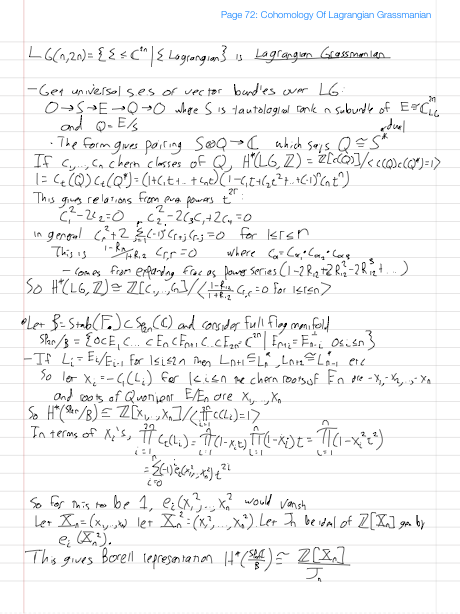 Page 72: Cohomology Of Lagrangian Grassmanian
LG(n,2n)={Σ ≤ ℂ²ⁿ | Σ Lagrangian} is Lagrangian Grassmanian
- Get universal ses of vector bundles over LG:
0→S→E→Q→0 where S is tautological rank n subundle of E≅ℂ²ⁿ_LG
and Q=E/S
· The form gives pairing S⊗Q→ℂ which says Q≅S* dual
If c₁,...,cₙ chern classes of Q, H*(LG,ℤ)=ℤ[c(Q)]/<c(Q)c(Q*)=1>
1=Cₜ(Q)Cₜ(Q*)=(1+c₁t+..+cₙtⁿ)(1-c₁t+c₂t²+..+(-1)ⁿcₙtⁿ)
This gives relations from even powers t²ʳ:
c₁²-2c₂=0, c₂²-2c₃c₁+2c₄=0
in general cᵣ²+2 Σ(-1)ʲcᵣ₊ⱼcᵣ₋ⱼ=0 for 1≤r≤n
This is (1-R₁₂)/(1+R₁₂) Cᵣ,ᵣ=0 where Cα=Cα₁·Cα₂·Cαₑ
- comes from expanding frac as power series (1-2R₁₂+2R₁₂²-2R₁₂³+...)
So H*(LG,ℤ)≅ℤ[c₁,..,cₙ]/<(1-R₁₂)/(1+R₁₂) Cᵣ,ᵣ=0 for 1≤r≤n>
• Let B=Stab(F.)⊂Sp₂ₙ(ℂ) and consider full flag manifold
Sp₂ₙ/B={0⊂E₁⊂...⊂Eₙ⊂Eₙ₊₁⊂..⊂E₂ₙ=ℂ²ⁿ | Eₙ₊ᵢ=Eₙ₋ᵢ^⊥ 0≤i≤n}
- If Lᵢ=Eᵢ/Eᵢ₋₁ for 1≤i≤2n then Lₙ₊₁≅Lₙ*, Lₙ₊₂≅Lₙ₋₁* etc
So let xᵢ=-c₁(Lᵢ) for 1≤i≤n the chern roots of Eₙ are -x₁,-x₂,..,-xₙ
and roots of Quotient E/Eₙ are x₁,..,xₙ
So H*(Sp₂ₙ/B)≅ℤ[x₁,..,xₙ]/<∏c(Lᵢ)=1>
In terms of xᵢ's, ∏ᵢ₌₁²ⁿ cₜ(Lᵢ)=∏ᵢ₌₁ⁿ(1-xᵢt)∏ᵢ₌₁ⁿ(1-xᵢ)t=∏ᵢ₌₁ⁿ(1-xᵢ²t²)
=Σᵢ₌₀ⁿ(-1)ⁱeᵢ(x₁²,..,xₙ²)t²ⁱ
So for this to be 1, eᵢ(x₁²,..,xₙ²) would vanish
Let 𝕏ₙ=(x₁,..,xₙ) let 𝕏ₙ²=(x₁²,..,xₙ²). Let Jₙ be ideal of ℤ[𝕏ₙ] gen by
eᵢ(𝕏ₙ²).
This gives Borell representation H*(Sp₂ₙ/B)≅ℤ[𝕏ₙ]/Jₙ